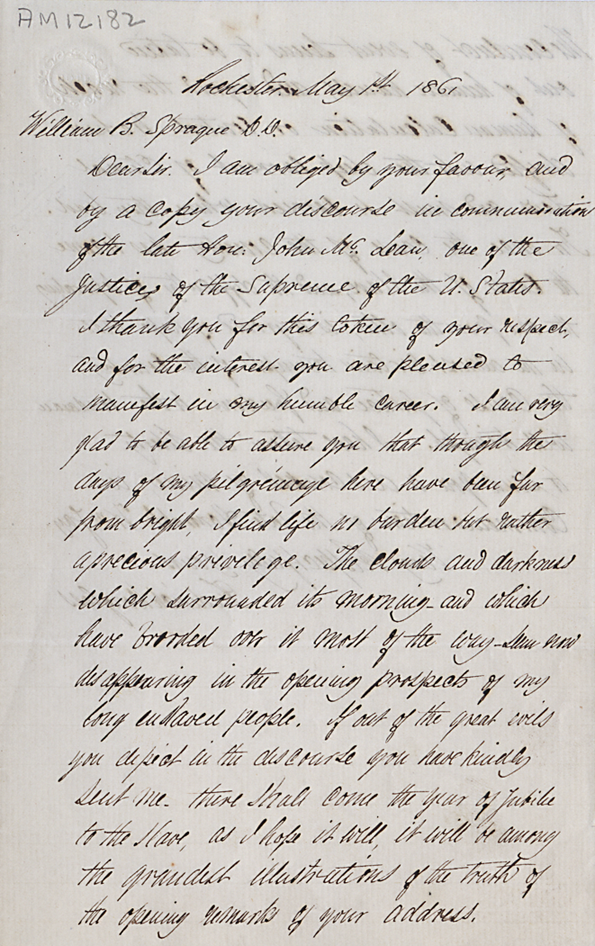 AM12182
Rochester May 1st 1861
William B. Sprague D.D.
Dear Sir. I am obliged by your favour, and
by a copy your discourse in commemoration
of the late Hon: John Mc Lean, one of the
Justices of the Supreme of the U. States.
I thank you for this token of your respect,
and for the interest you are pleased to
manifest in my humble career. I am very
glad to be able to assure you that though the
days of my pilgrimage here have been far
from bright, I find life no burden but rather
a precious privilege. The clouds and darkness
which surrounded its morning and which
have brooded over it most of the way - seem now
disappearing in the opening prospects of my
long enslaved people. If out of the great evils
you depict in the discourse you have kindly
sent me - there shall come the year of Jubilee
to the slave, as I hope it will, it will be among
the grandest illustrations of the truth of
the opening remarks of your address.